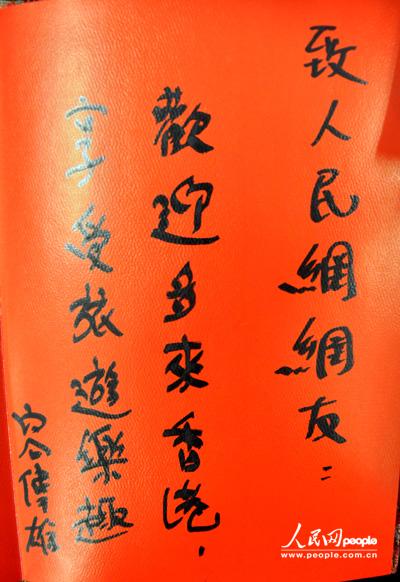 致人民網網友：
歡迎多來香港，
享受旅遊樂趣
容偉雄
人民网 people
www.people.com.cn